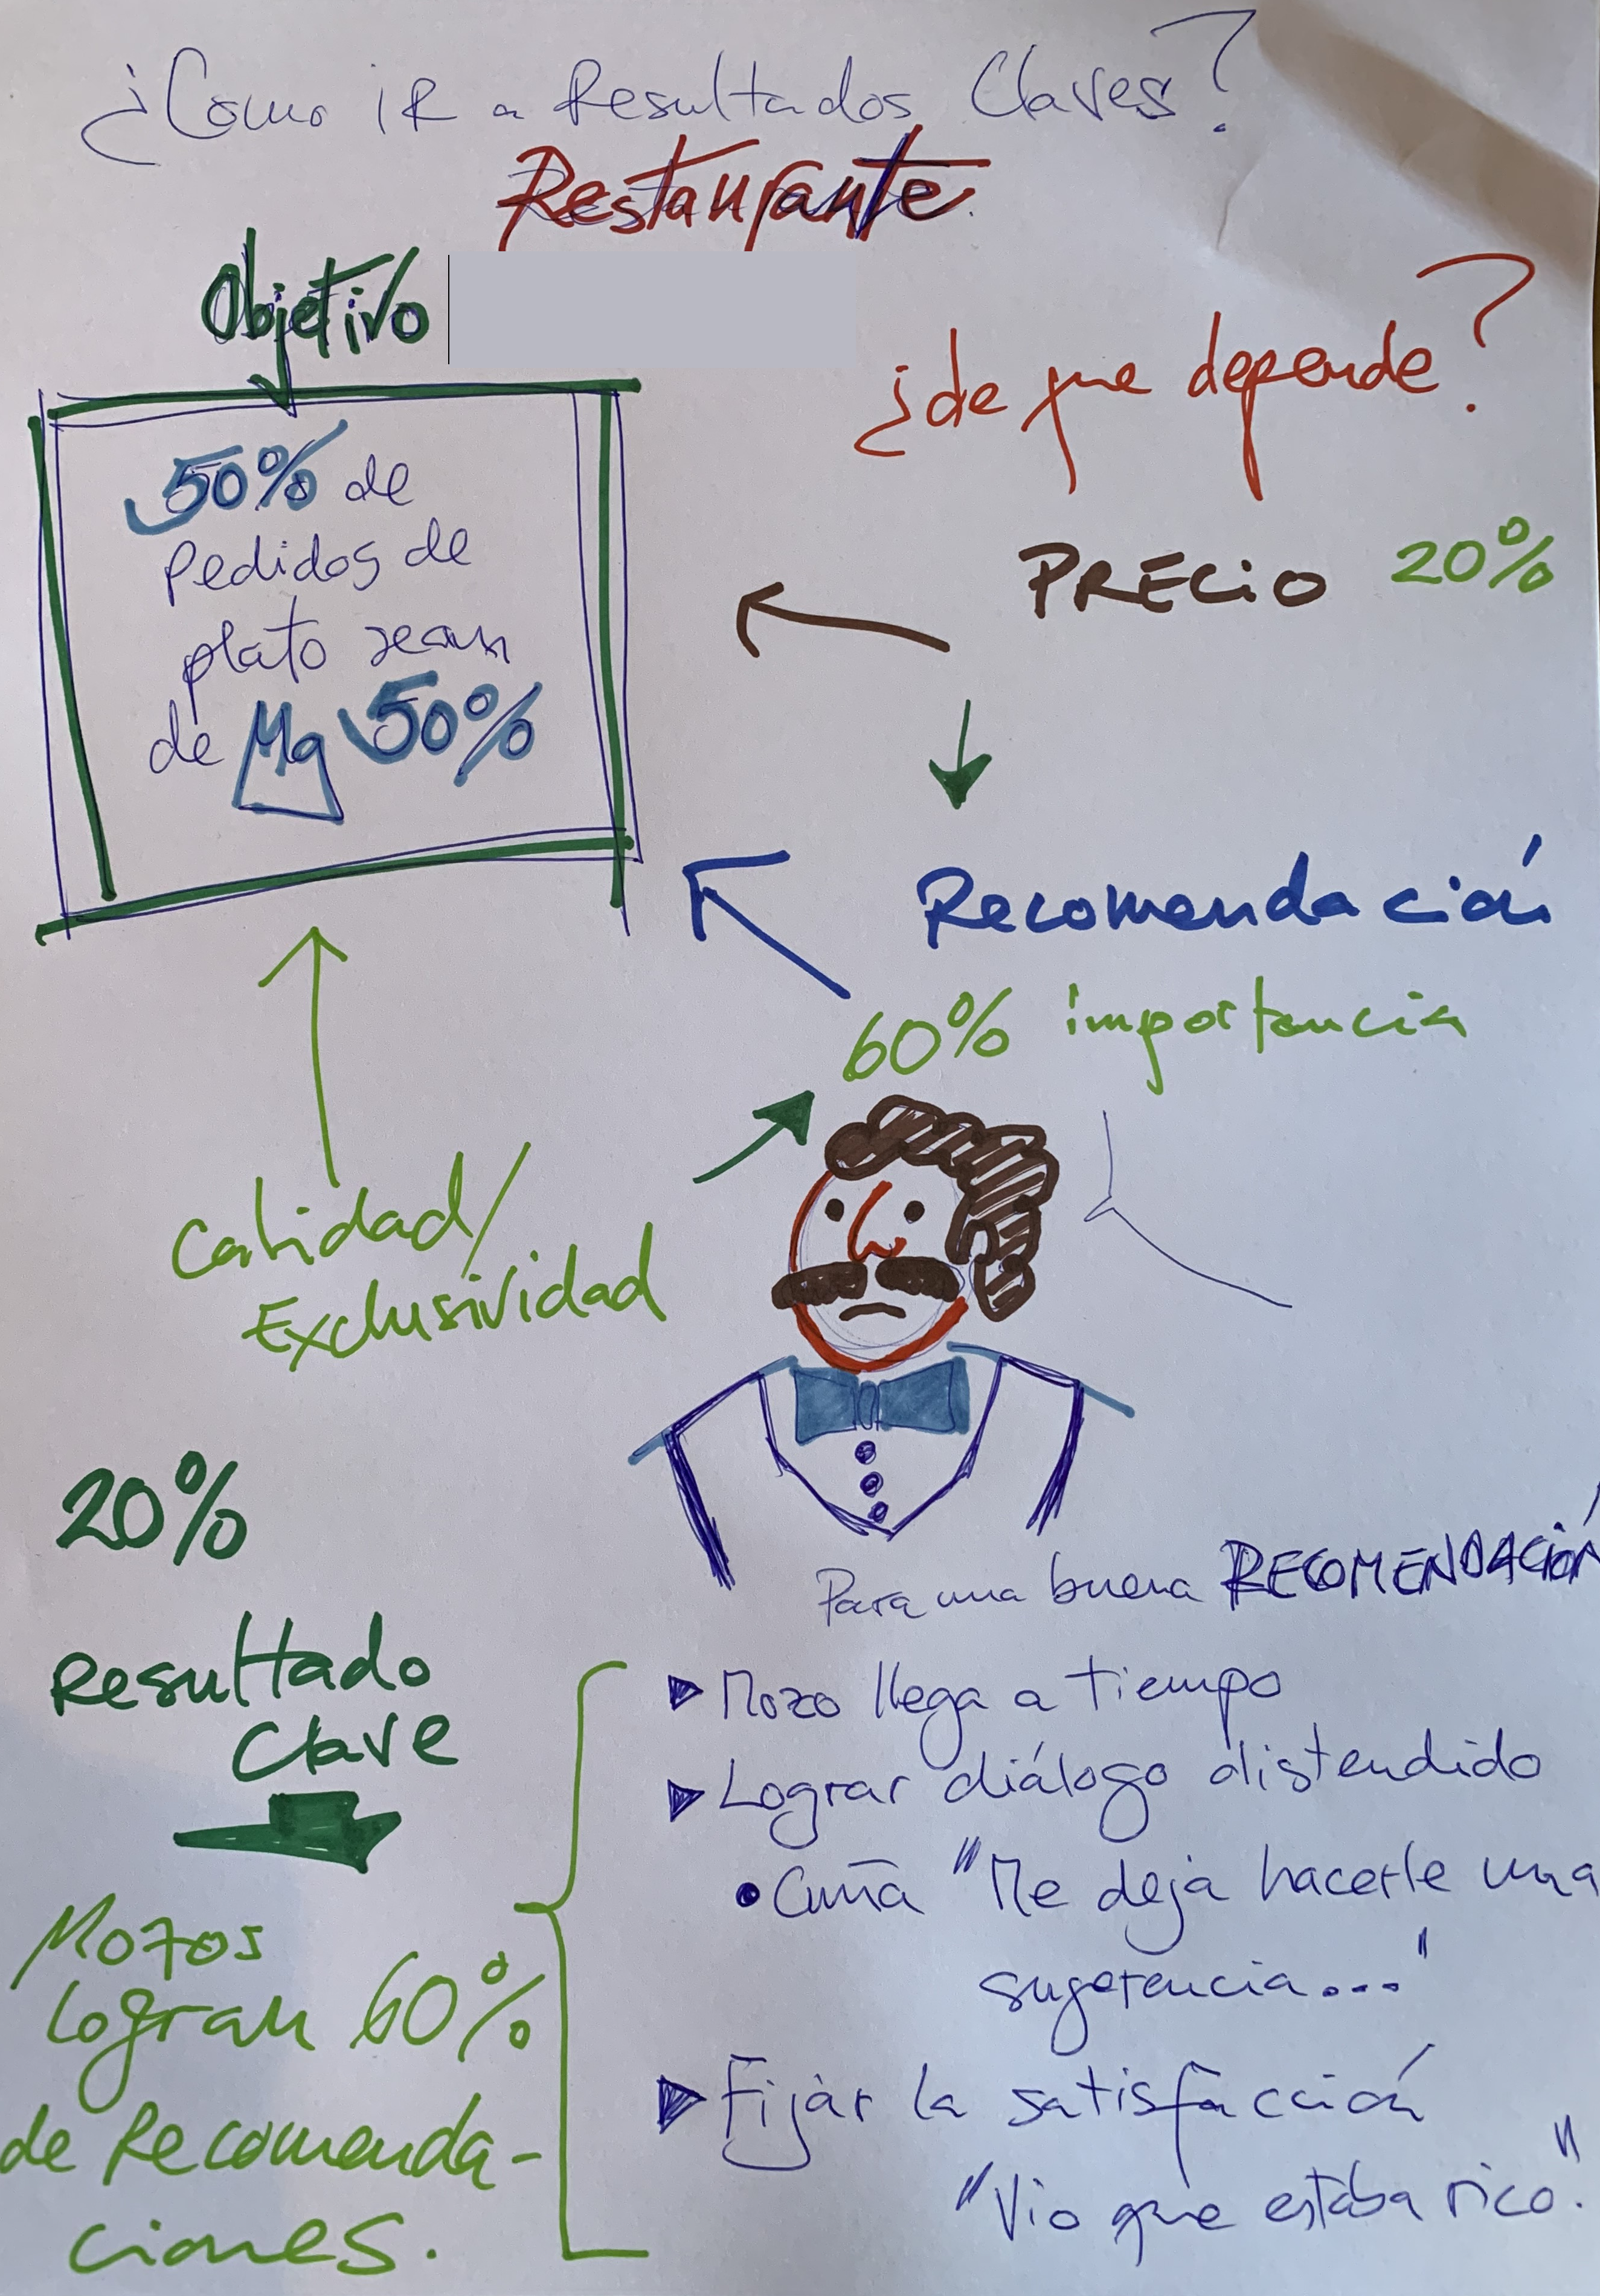 ¿Como IR a Resultados Claves?
Restaurante
Objetivo
50% de
Pedidos de
plato sean
de Mg 50%
¿de que depende?
PRECIO 20%
Recomendación
60% importancia
Calidad/
Exclusividad
20%
Resultado
Clave
Mozos
logran 60%
de Recomenda-
ciones.
Para una buena RECOMENDACIÓN
Mozo llega a tiempo
Lograr diálogo distendido
• Cuña "Me deja hacerle una
sugerencia..."
Fijar la satisfacción
"Vio que estaba rico."